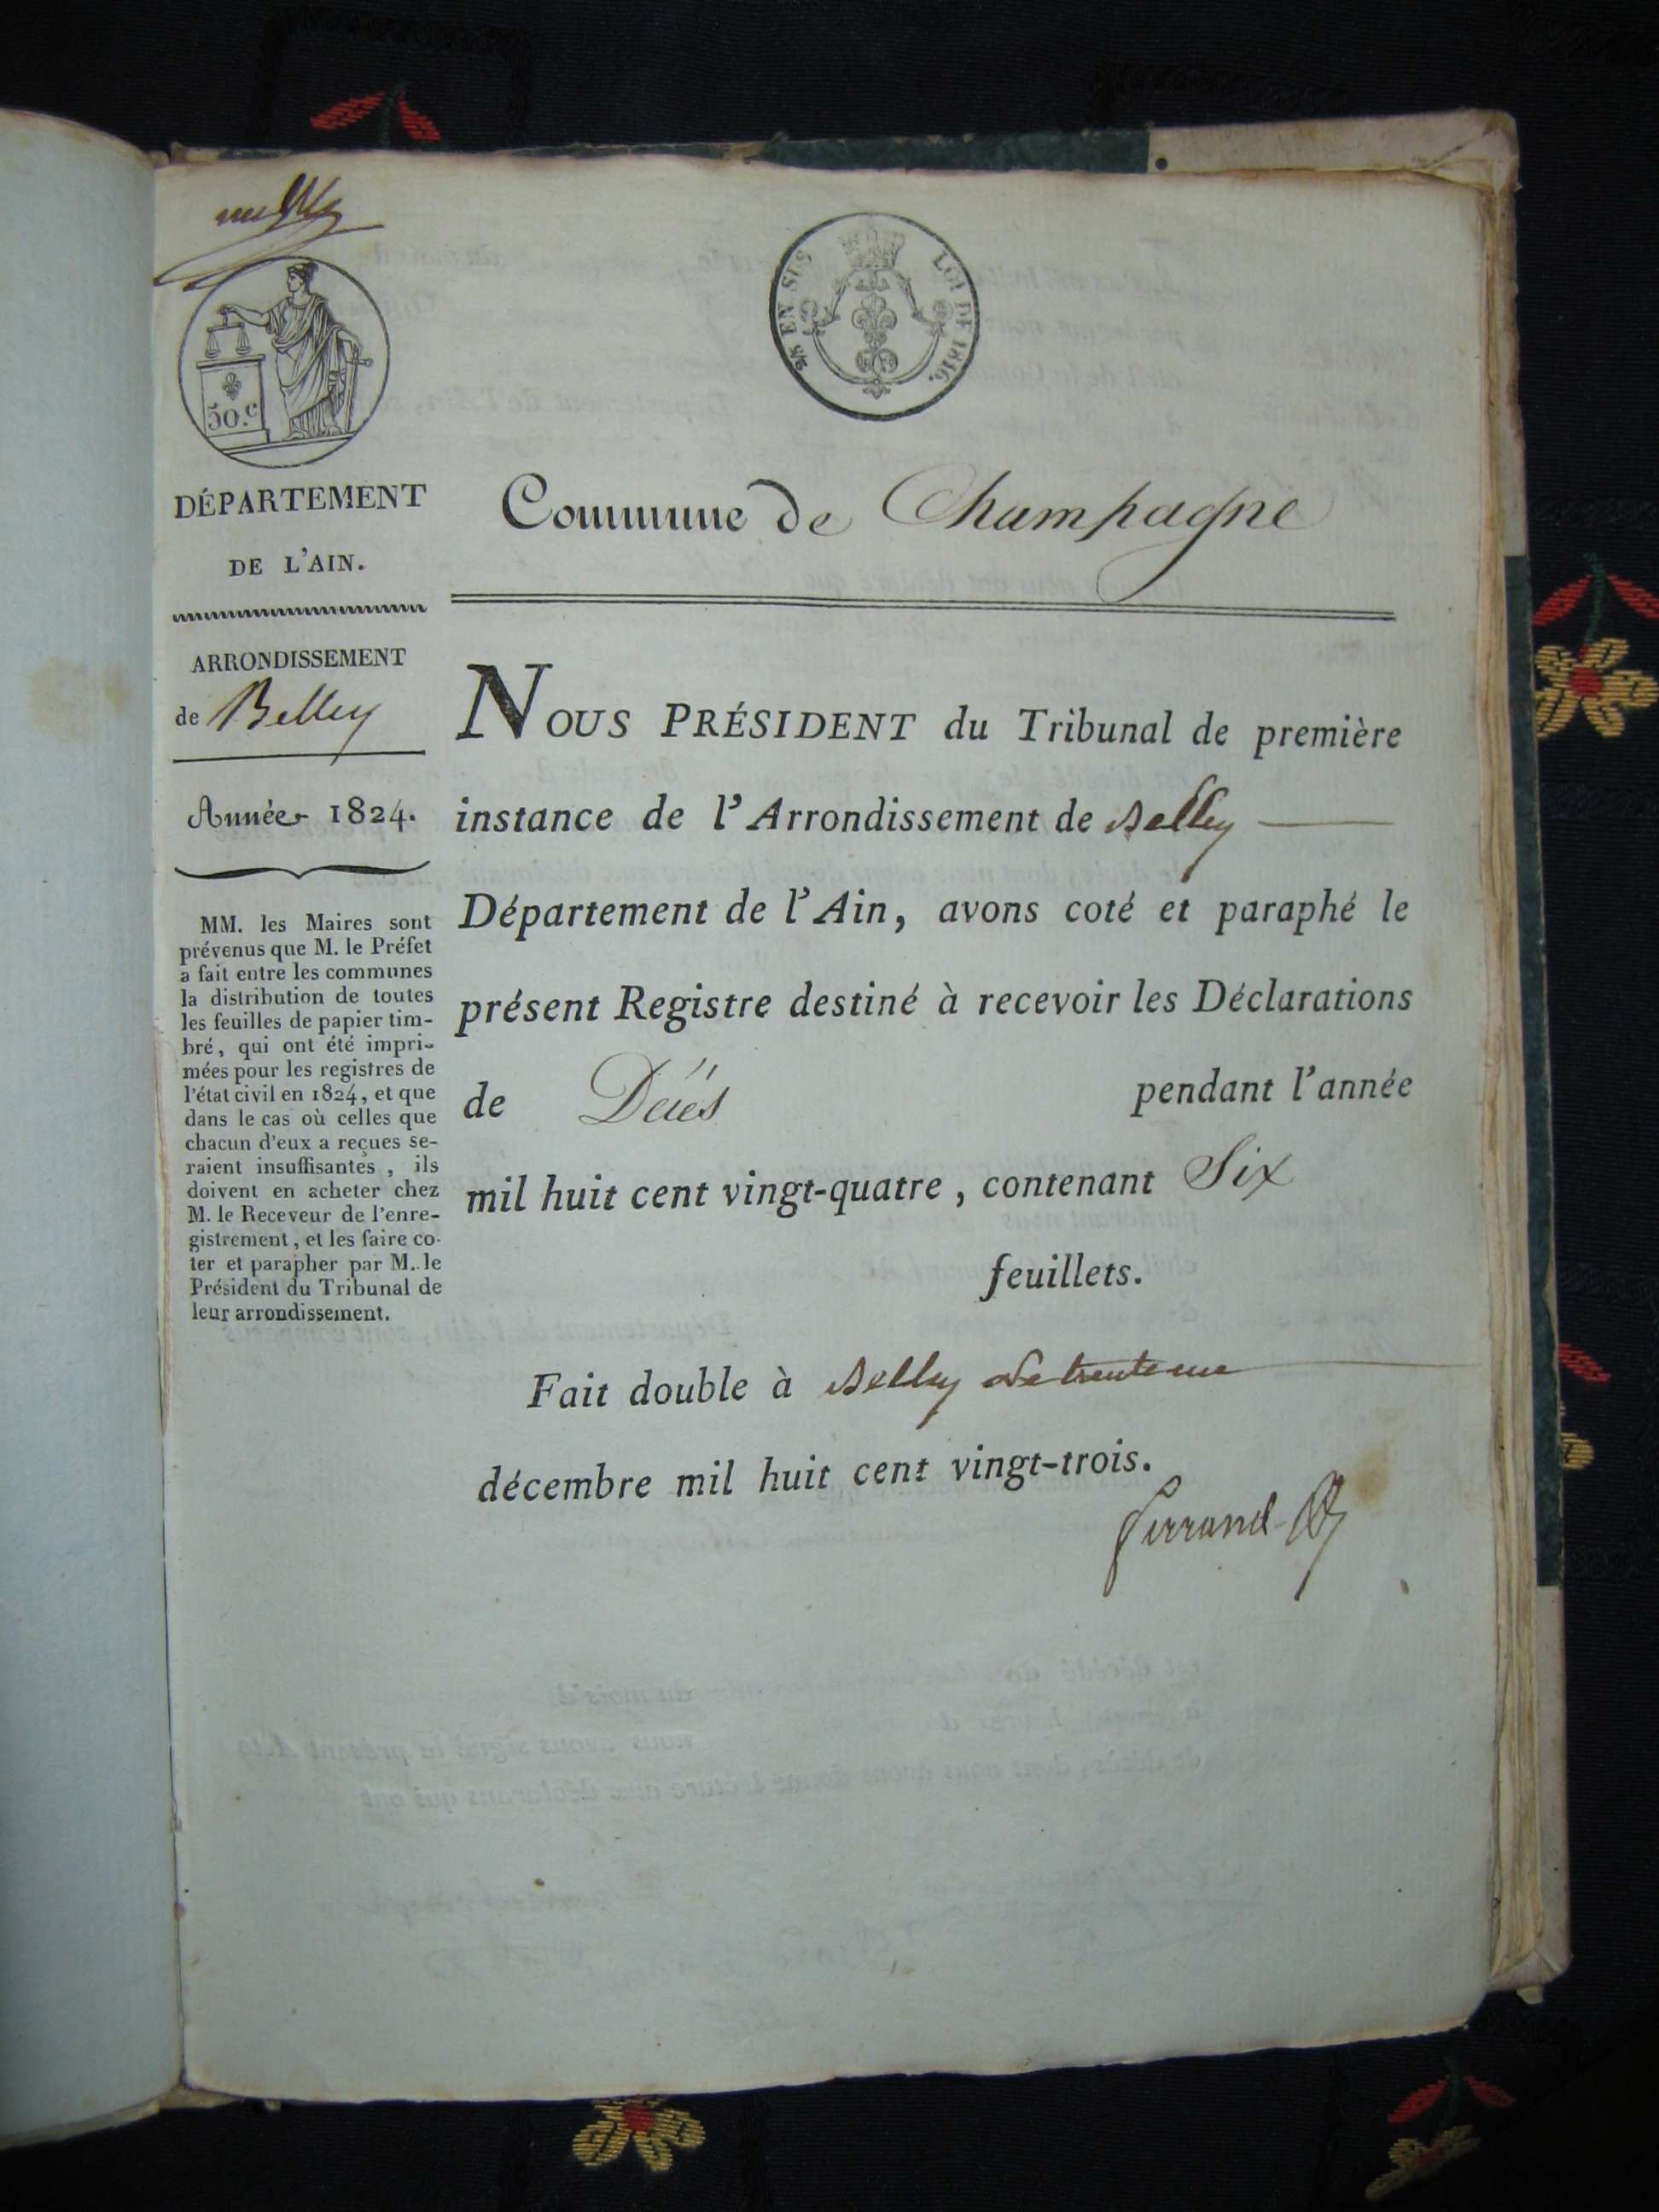 50.c
2/5 EN SUS
LOI DE 1816.
DÉPARTEMENT
DE L'AIN.
ARRONDISSEMENT
de Belley
Année 1824.
MM. les Maires sont
prévenus que M. le Préfet
a fait entre les communes
la distribution de toutes
les feuilles de papier tim-
bré, qui ont été impri-
mées pour les registres de
l'état civil en 1824, et que
dans le cas où celles que
chacun d'eux a reçues se-
raient insuffisantes, ils
doivent en acheter chez
M. le Receveur de l'enre-
gistrement, et les faire co-
ter et parapher par M. le
Président du Tribunal de
leur arrondissement.
Commune de Champagne
NOUS PRÉSIDENT du Tribunal de première
instance de l'Arrondissement de Belley
Département de l'Ain, avons coté et paraphé le
présent Registre destiné à recevoir les Déclarations
de Décés pendant l'année
mil huit cent vingt-quatre, contenant Six
feuillets.
Fait double à Belley le trente une
décembre mil huit cent vingt-trois.